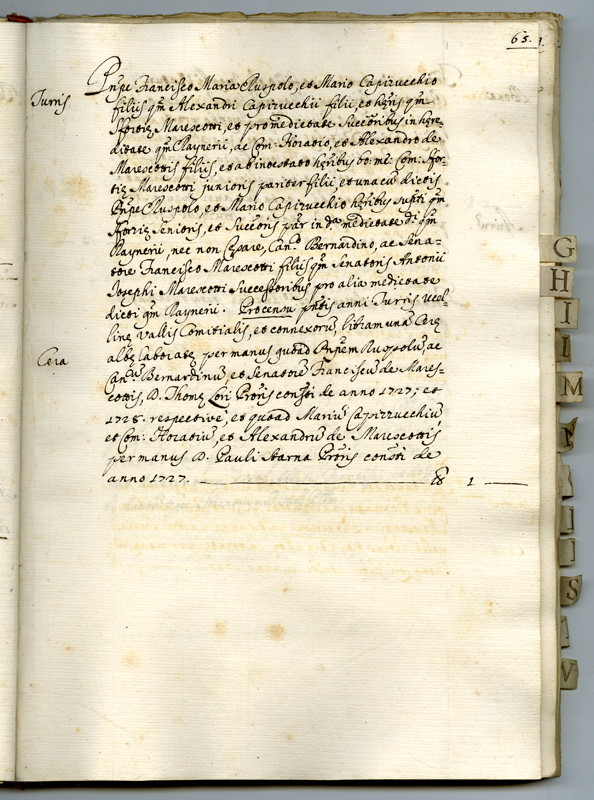 65.
Turris
Pnp̃e Francisco Maria Ruspolo, et Mario Capizucchio
filijs qm̃ Alexandri Capizucchii filii, et hẽris qm̃
Sfortię Marescotti, et pro medietate Succẽoribus in hẽre
ditate qm̃ Raynerii, ac Com: Horatio, et Alexandro de
Marescottis filiis, et ab intestato hẽribus bo: me: Com: Sfor
tię Marescotti junioris pariter filii, et unacũ dictis
Pnp̃e Ruspolo, et Mario Capizucchio hẽribus supti qm̃
Sfortię Senioris, et Succẽoris par̃ in dã medietate di qm̃
Raynerii, nec non Cępare, Canco Bernardino, ac Sena-
tore Francisco Marescotti filiis qm̃ Senatoris Antonii
Josephi Marescotti Successoribus pro alia medietate
dicti qm̃ Raynerii. Pro censu pñtis anni Turris
linę Vallis Comitialis, et connexorũ, libram unã Cerę
Cera
albę laboratę per manus quoad Pnp̃em Ruspolũ, ac
Cancũ Bernardinũ, et Senatorẽ Franciscũ de Mares-
cottis, D. Thomę Lori Pro͠ris const̃i de anno 1727; et
1728. respective, et quoad Mariũ Capizucchiũ,
et Com: Horatiũ, et Alexandrũ de Marescottis
per manus D. Pauli Starna Pro͠ris const̃i de
anno 1727. 1
G
H
I
I
M
I
I
S
V